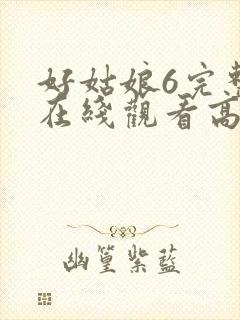 好姑娘6完整
在线观看高
幽篁紫蓝